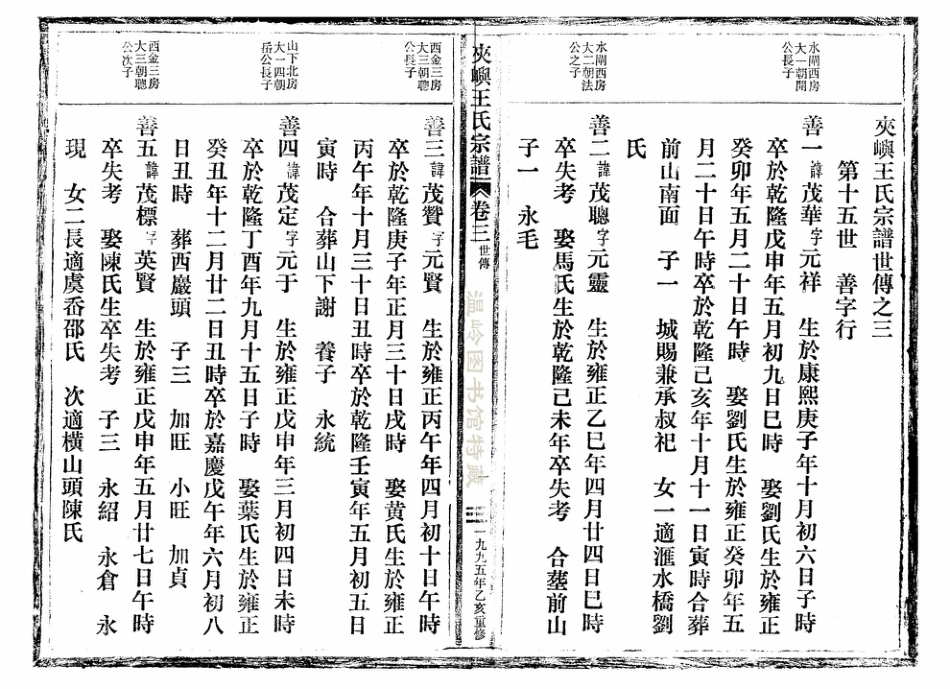 夾嶼王氏宗譜世傳之三
第十五世 善字行
水閘西房
大一朝開
公長子
善一諱茂華字元祥 生於康熙庚子年十月初六日子時
卒於乾隆戊申年五月初九日巳時 娶劉氏生於雍正
癸卯年五月二十日午時 娶劉氏生於雍正癸卯年五
月二十日午時卒於乾隆己亥年十月十一日寅時合葬
前山南面 子一 城賜兼承叔祀 女一適滙水橋劉
氏
水閘西房
大二朝法
公之子
善二諱茂聰字元靈 生於雍正乙巳年四月廿四日巳時
卒失考 娶馬氏生於乾隆己未年卒失考 合塟前山
子一 永毛
夾嶼王氏宗譜 卷三 世傳
一九九五年乙亥重修
温岭图书馆特藏
西金三房
大三朝聰
公長子
善三諱茂贊字元賢 生於雍正丙午年四月初十日午時
卒於乾隆庚子年正月三十日戌時 娶黄氏生於雍正
丙午年十月三十日丑時卒於乾隆壬寅年五月初五日
寅時 合葬山下謝 養子 永統
山下北房
大一四朝
岳公長子
善四諱茂定字元于 生於雍正戊申年三月初四日未時
卒於乾隆丁酉年九月十五日子時 娶葉氏生於雍正
癸丑年十二月廿二日丑時卒於嘉慶戊午年六月初八
日丑時 葬西巖頭 子三 加旺 小旺 加貞
西金三房
大三朝聰
公次子
善五諱茂標字英賢 生於雍正戊申年五月廿七日午時
卒失考 娶陳氏生卒失考 子三 永紹 永倉 永
現 女二長適虞岙邵氏 次適横山頭陳氏